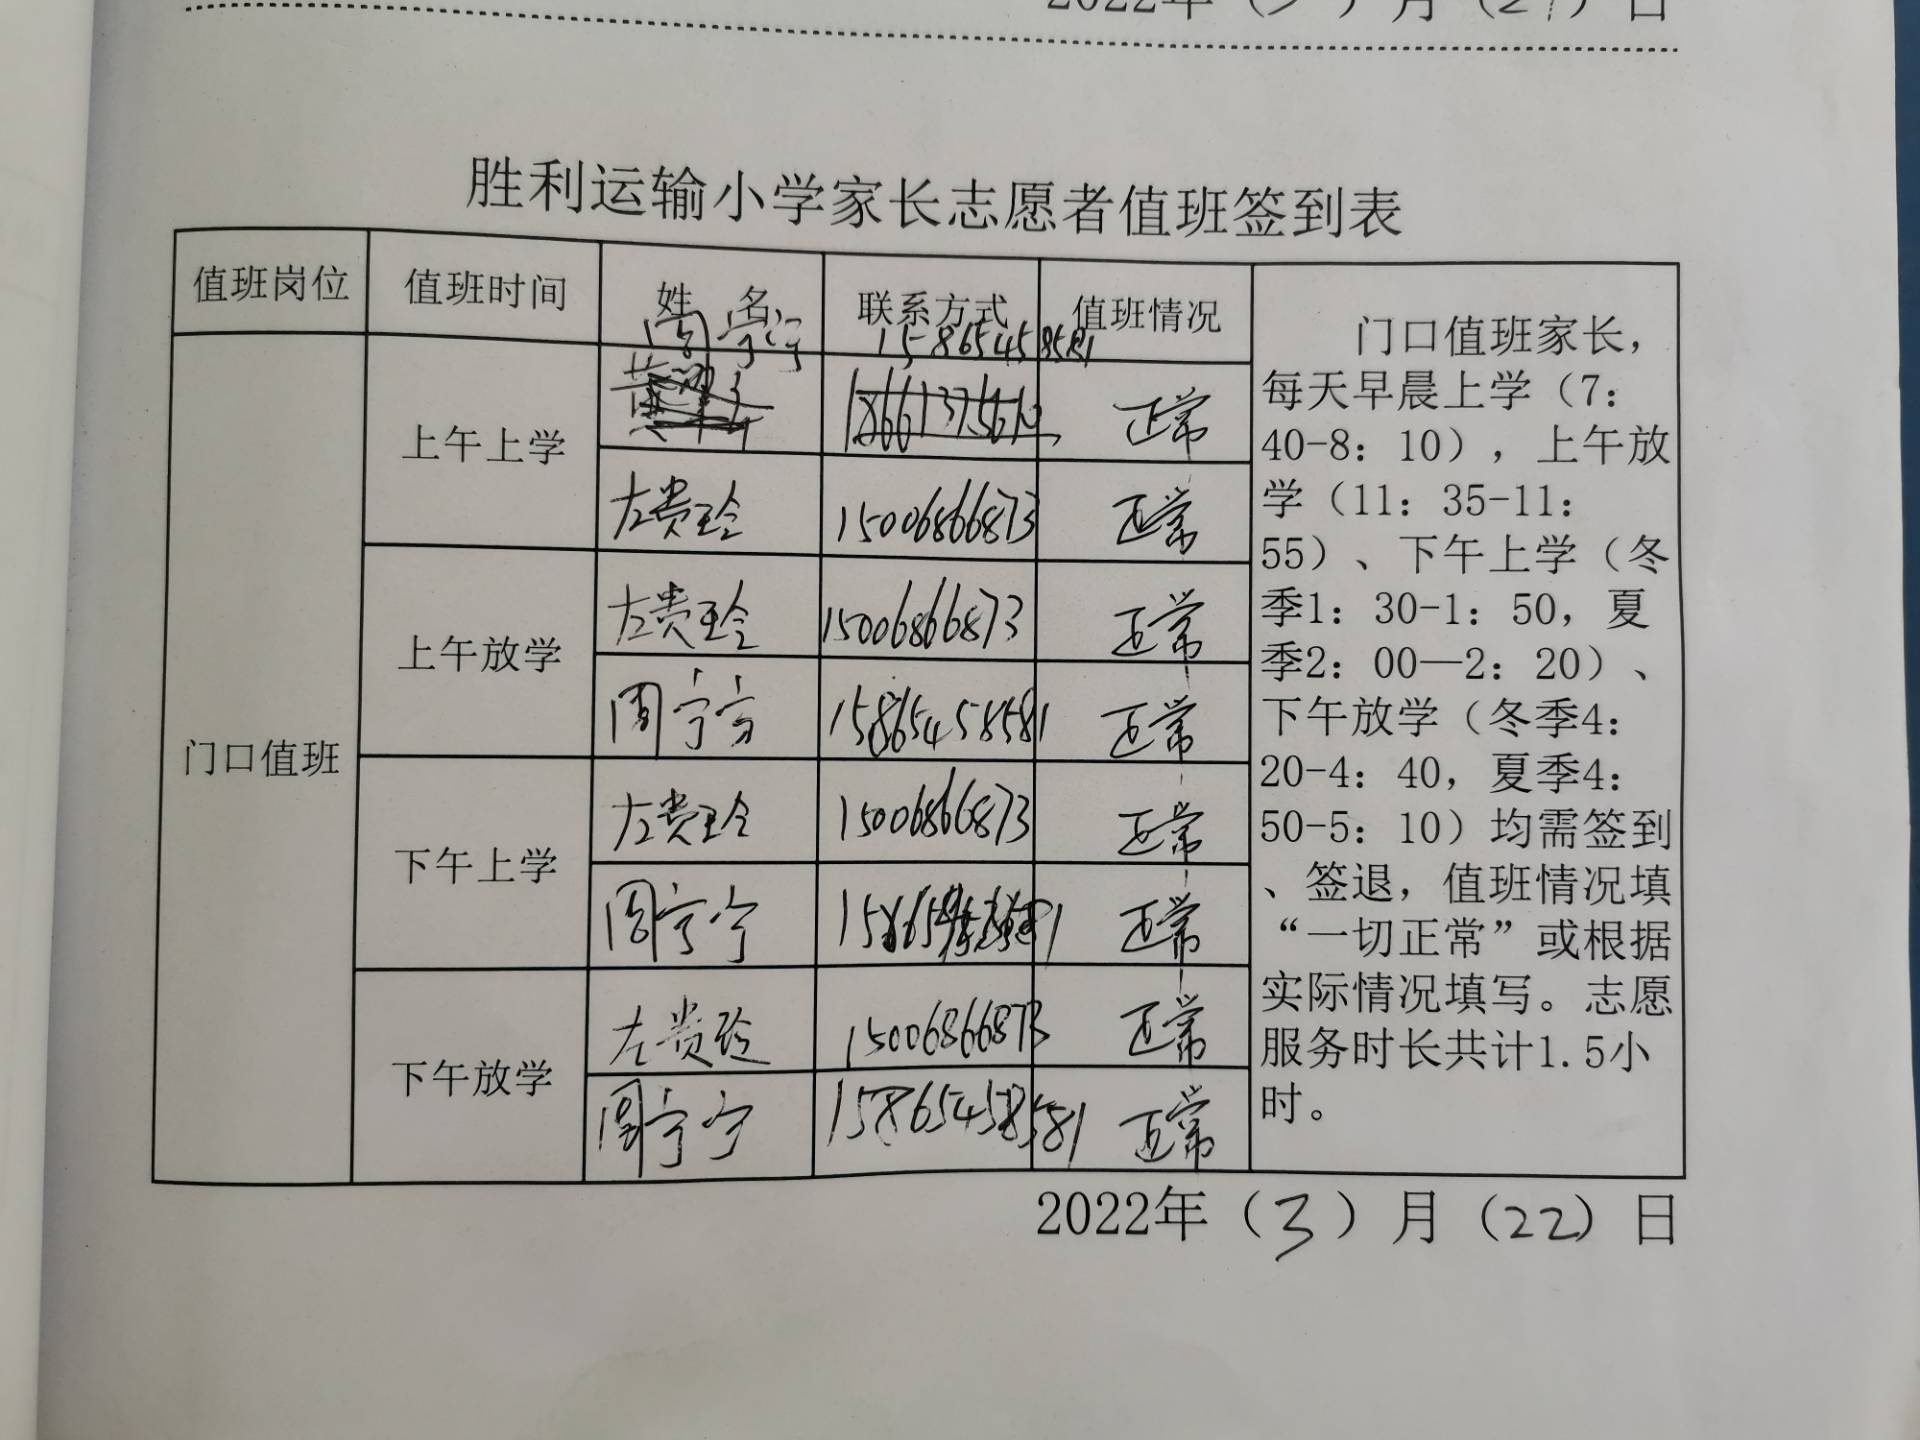 2022年（3）月（21）日
胜利运输小学家长志愿者值班签到表
值班岗位 值班时间 姓 名 联系方式 值班情况
周宁宁 15865458581
上午上学 正常
左贵玲 15006866873 正常
上午放学 左贵玲 15006866873 正常
周宁宁 15865458581 正常
门口值班
下午上学 左贵玲 15006866873 正常
周宁宁 正常
下午放学 左贵玲 15006866873 正常
周宁宁 15865458581 正常
门口值班家长，
每天早晨上学（7：
40-8：10），上午放
学（11：35-11：
55）、下午上学（冬
季1：30-1：50，夏
季2：00—2：20）、
下午放学（冬季4：
20-4：40，夏季4：
50-5：10）均需签到
、签退，值班情况填
“一切正常”或根据
实际情况填写。志愿
服务时长共计1.5小
时。
2022年（3）月（22）日